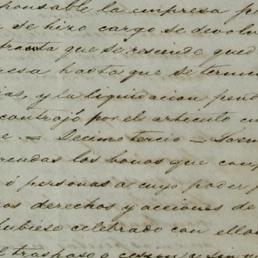 ponsable la empresa p
e se hizo cargo se devolu
trata que se rescinde qued
resa hasta que se termin
ias, y la liquidacion
contrajó por el articulo cu
e — Decimotercio —
rendas los bonos que com
ó personas a cuyo poder p
os derechos y acciones de
hubiese celebrado con ello
el traspaso o